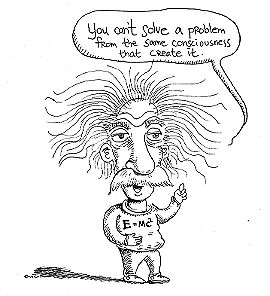 You can't solve a problem
from the same consciousness
that create it.
E=MC²